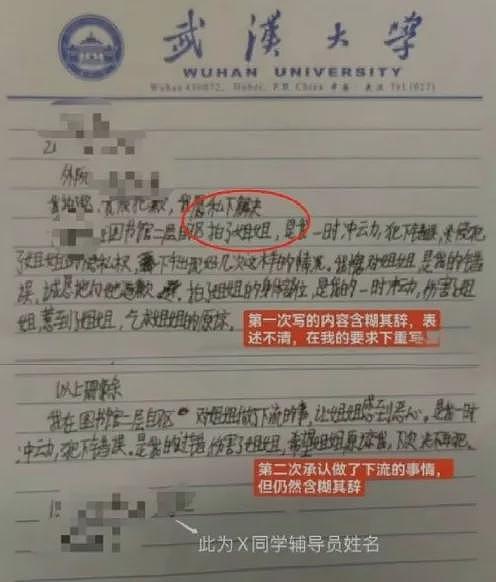 武漢大學
WUHAN UNIVERSITY
Wuhan 430072, Hubei, P.R. China 中国·武汉 Tel.(027)
外院
我愿私下解决
图书馆二层自习区拍了姐姐，是我一时冲动，犯下错误，侵犯
了姐姐的隐私权，
误，诚恳地向她道歉，拍了姐姐的身体部位，是我的一时冲动，伤害了姐
姐，惹到了姐姐，乞求姐姐的原谅。
第一次写的内容含糊其辞，表
述不清，在我的要求下重写
以上删除
我在图书馆二层自习区对姐姐做了下流的事，让姐姐感到恶心。是我一时
冲动，犯下错误。是我的过错伤害了姐姐，希望姐姐原谅我，下次决不再犯。
第二次承认做了下流的事情，
但仍然含糊其辞
此为X同学辅导员姓名